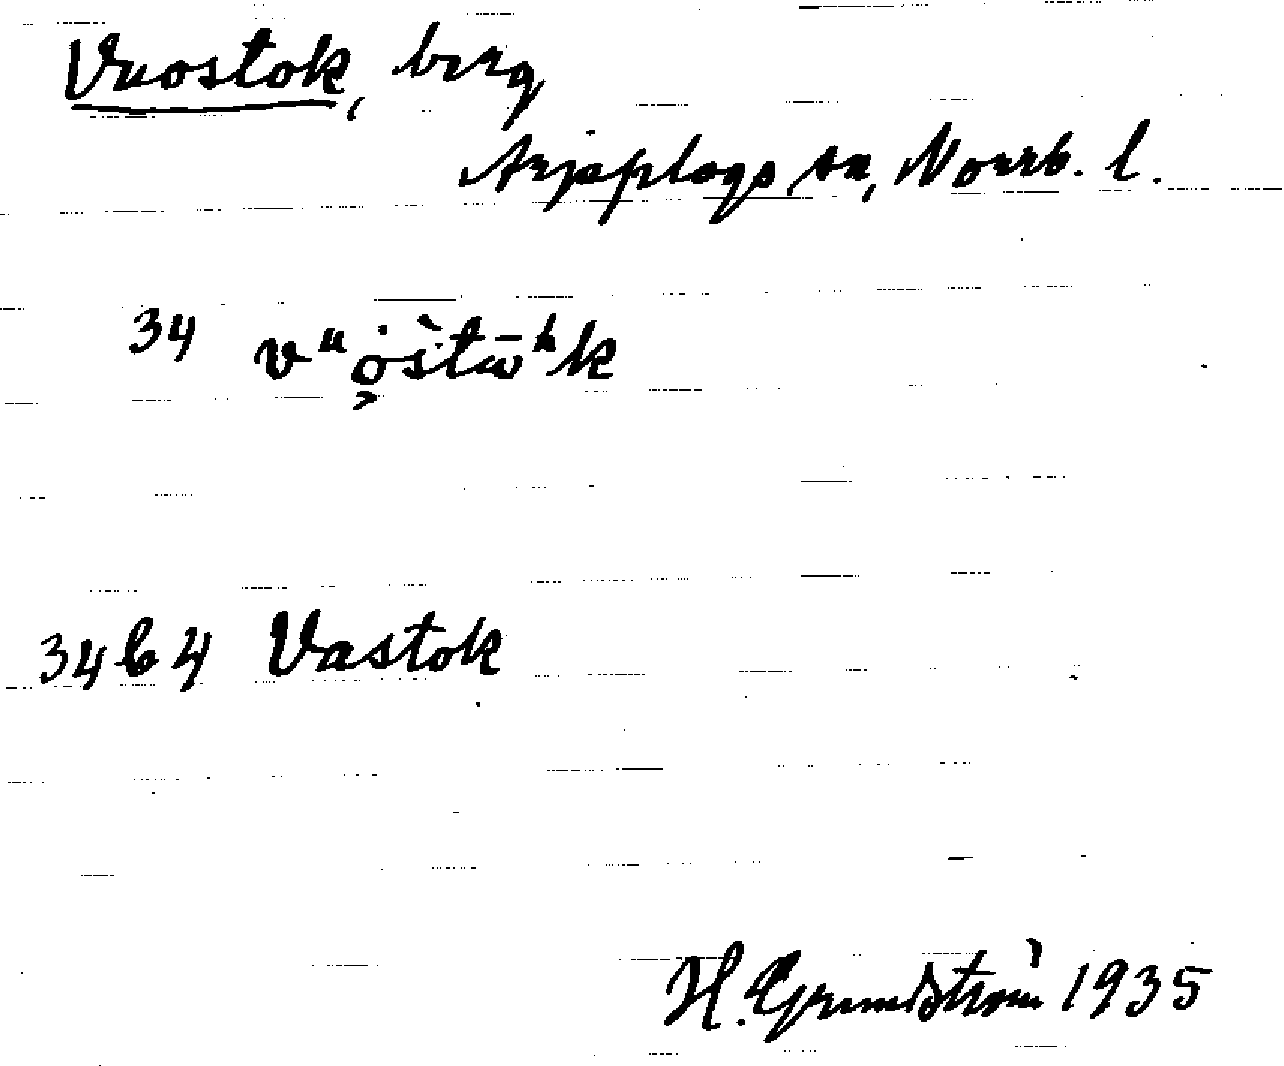 Vuostok, berg
Arjeplogs sn, Norrb. l.
34
34 b 4 Vastok
H. Grundström 1935